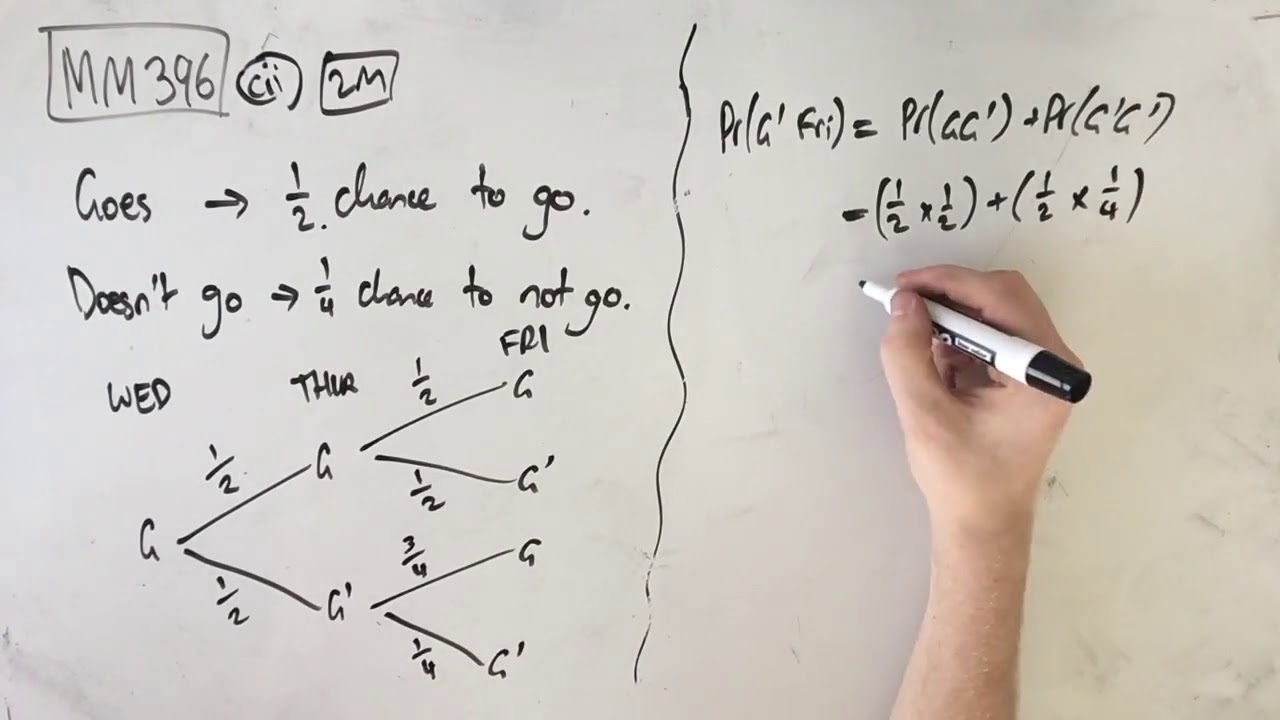 MM396 cii) 2M
Goes → 1/2 chance to go.
Doesn't go → 1/4 chance to not go.
WED THUR FRI
1/2 G
1/2 G
1/2 G'
G
3/4 G
1/2 G'
1/4 G'
Pr(G' Fri) = Pr(GG') + Pr(G'G')
= (1/2 × 1/2) + (1/2 × 1/4)